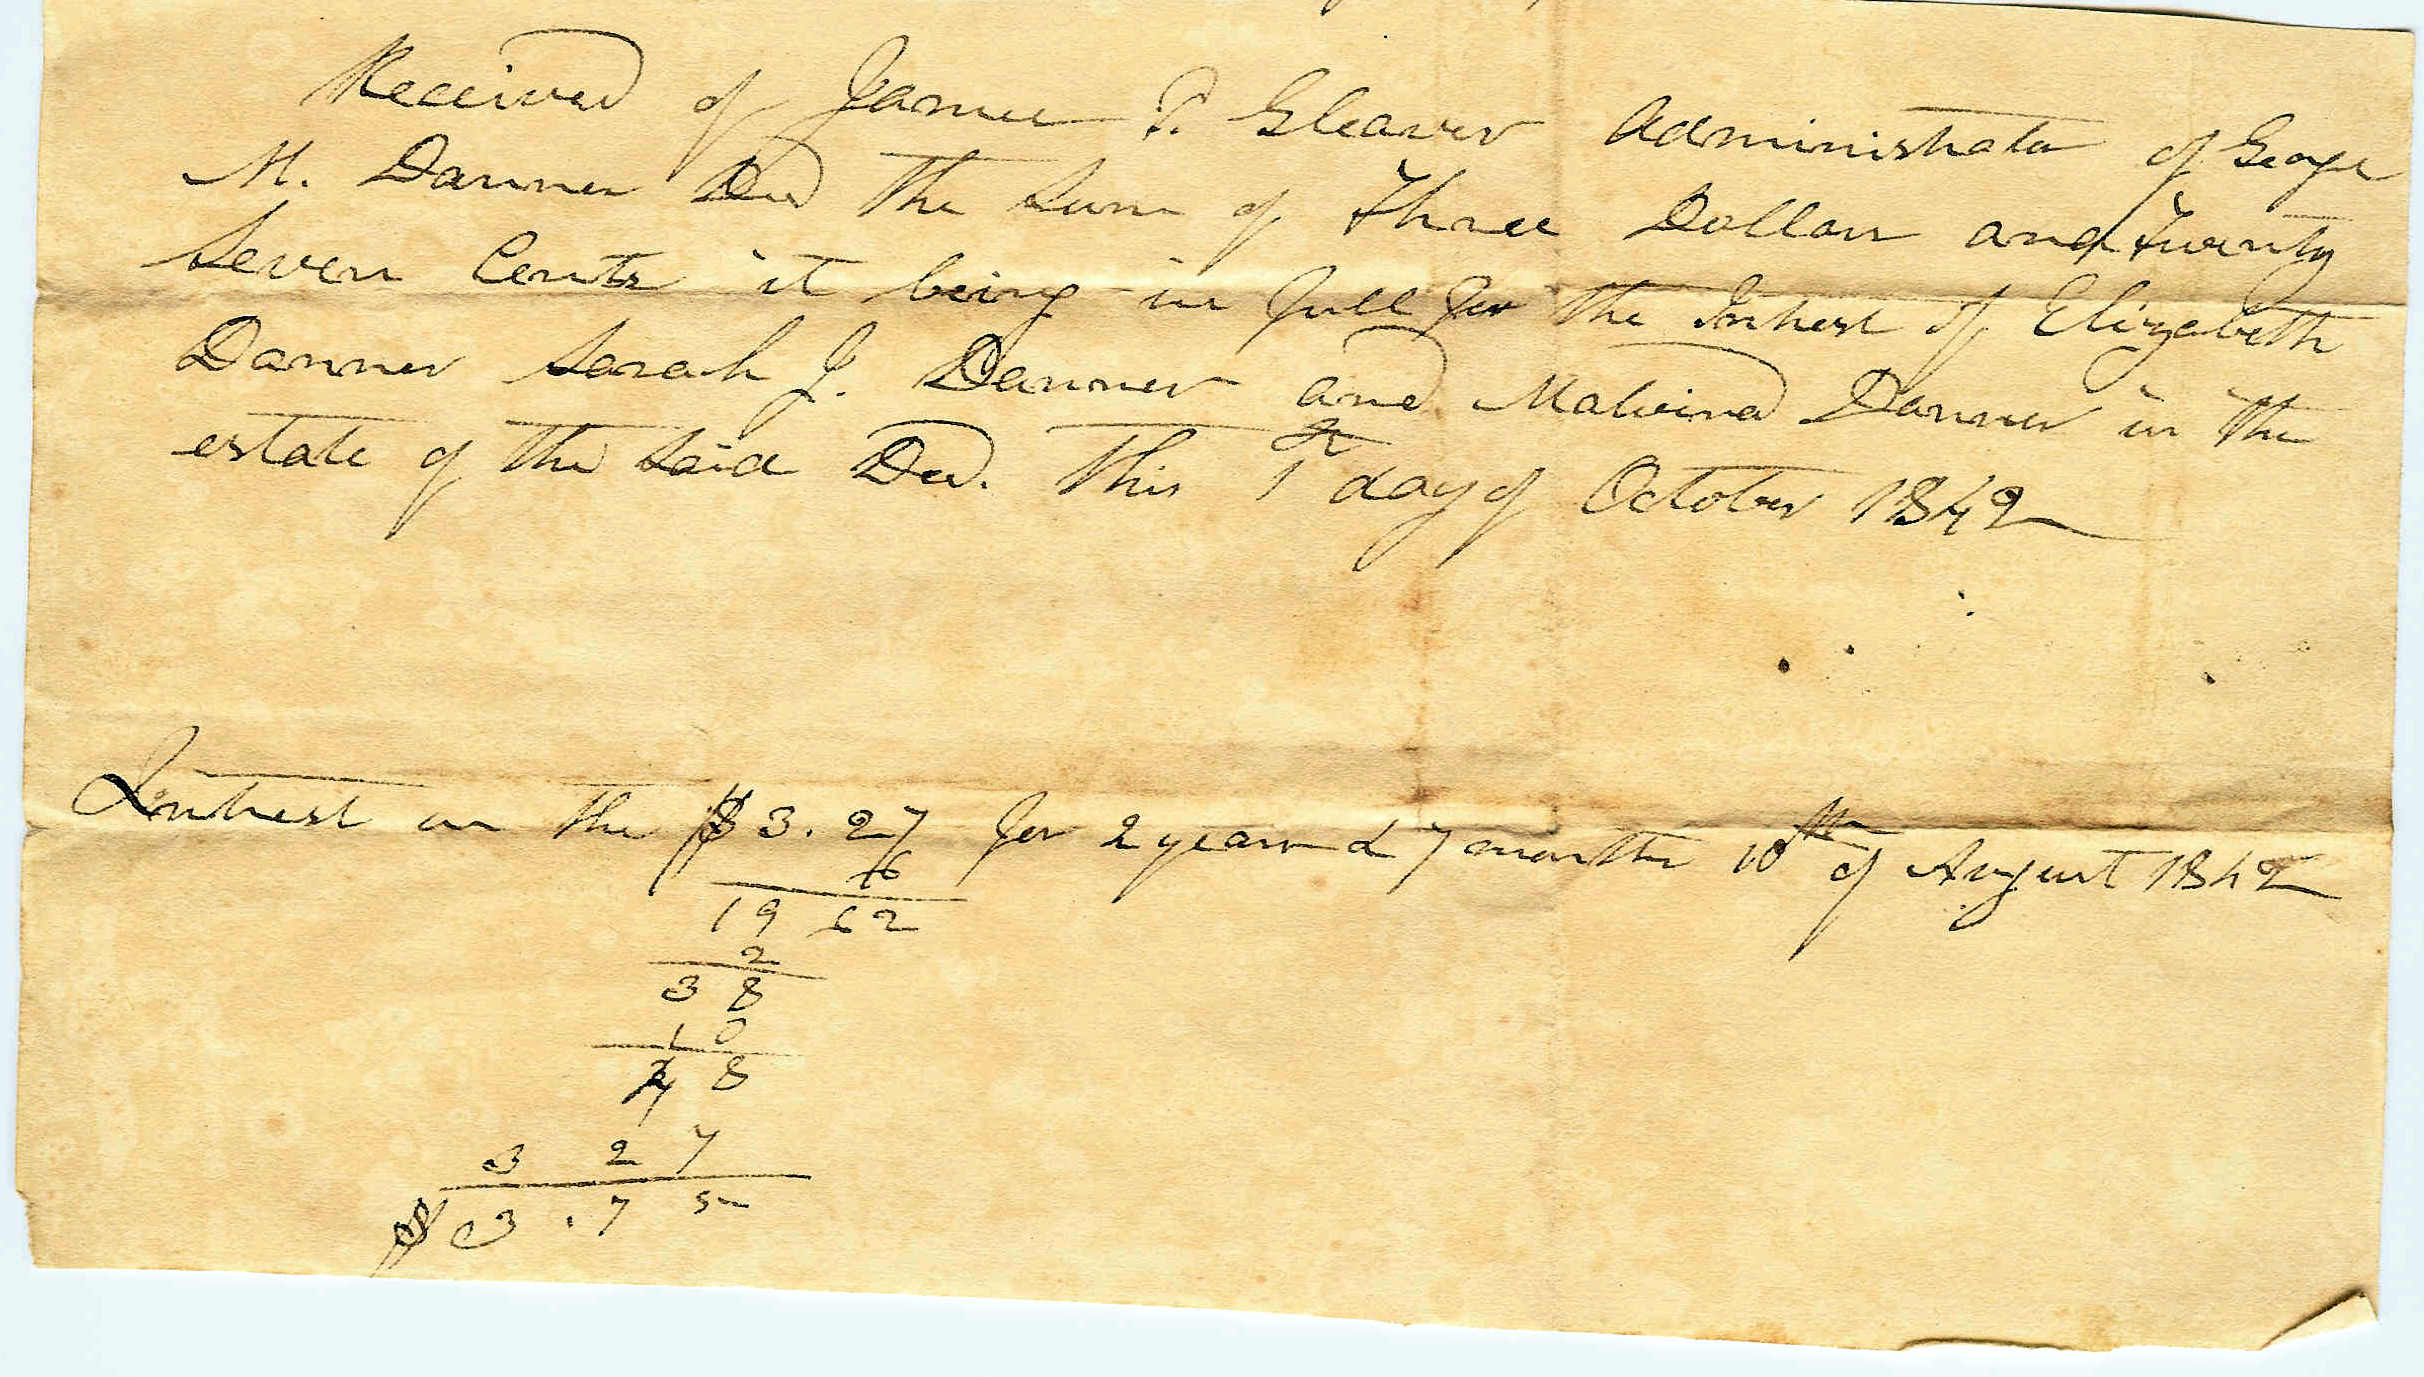 Received of James P. Gleaves Administrator of George
M. Danner Decd the Sum of Three Dollars and Twenty
Seven Cents it being in full for the Interest of Elizabeth
Danner Sarah J. Danner and Malvina Danner in the
estate of the Said Decd. this 1st day of October 1842
Interest on the $3.27 for 2 years & 7 months 10th of August 1842
6
19 62
2
3 8
1 0
4 8
3 2 7
$ 3.75